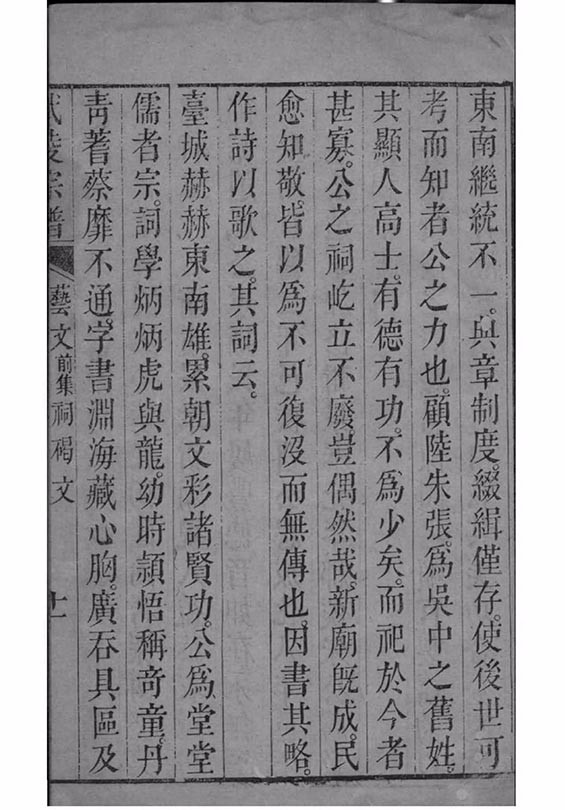 東南繼統不一。與章制度。綴緝僅存。使後世可
考而知者公之力也。顧陸朱張。爲吳中之舊姓。
其顯人高士。有德有功。不爲少矣。而祀於今者
甚寡。公之祠屹立不廢。豈偶然哉。新廟既成。民
愈知敬。皆以爲不可復沒而無傳也。因書其略。
作詩以歌之。其詞云。
臺城赫赫東南雄。累朝文彩諸賢功。公爲堂堂
儒者宗。詞學炳炳虎與龍。幼時頴悟稱奇童。丹
靑蓍蔡靡不通。字書淵海藏心胸。廣吞具區及
武陵宗譜 藝文前集 祠碣文 十一